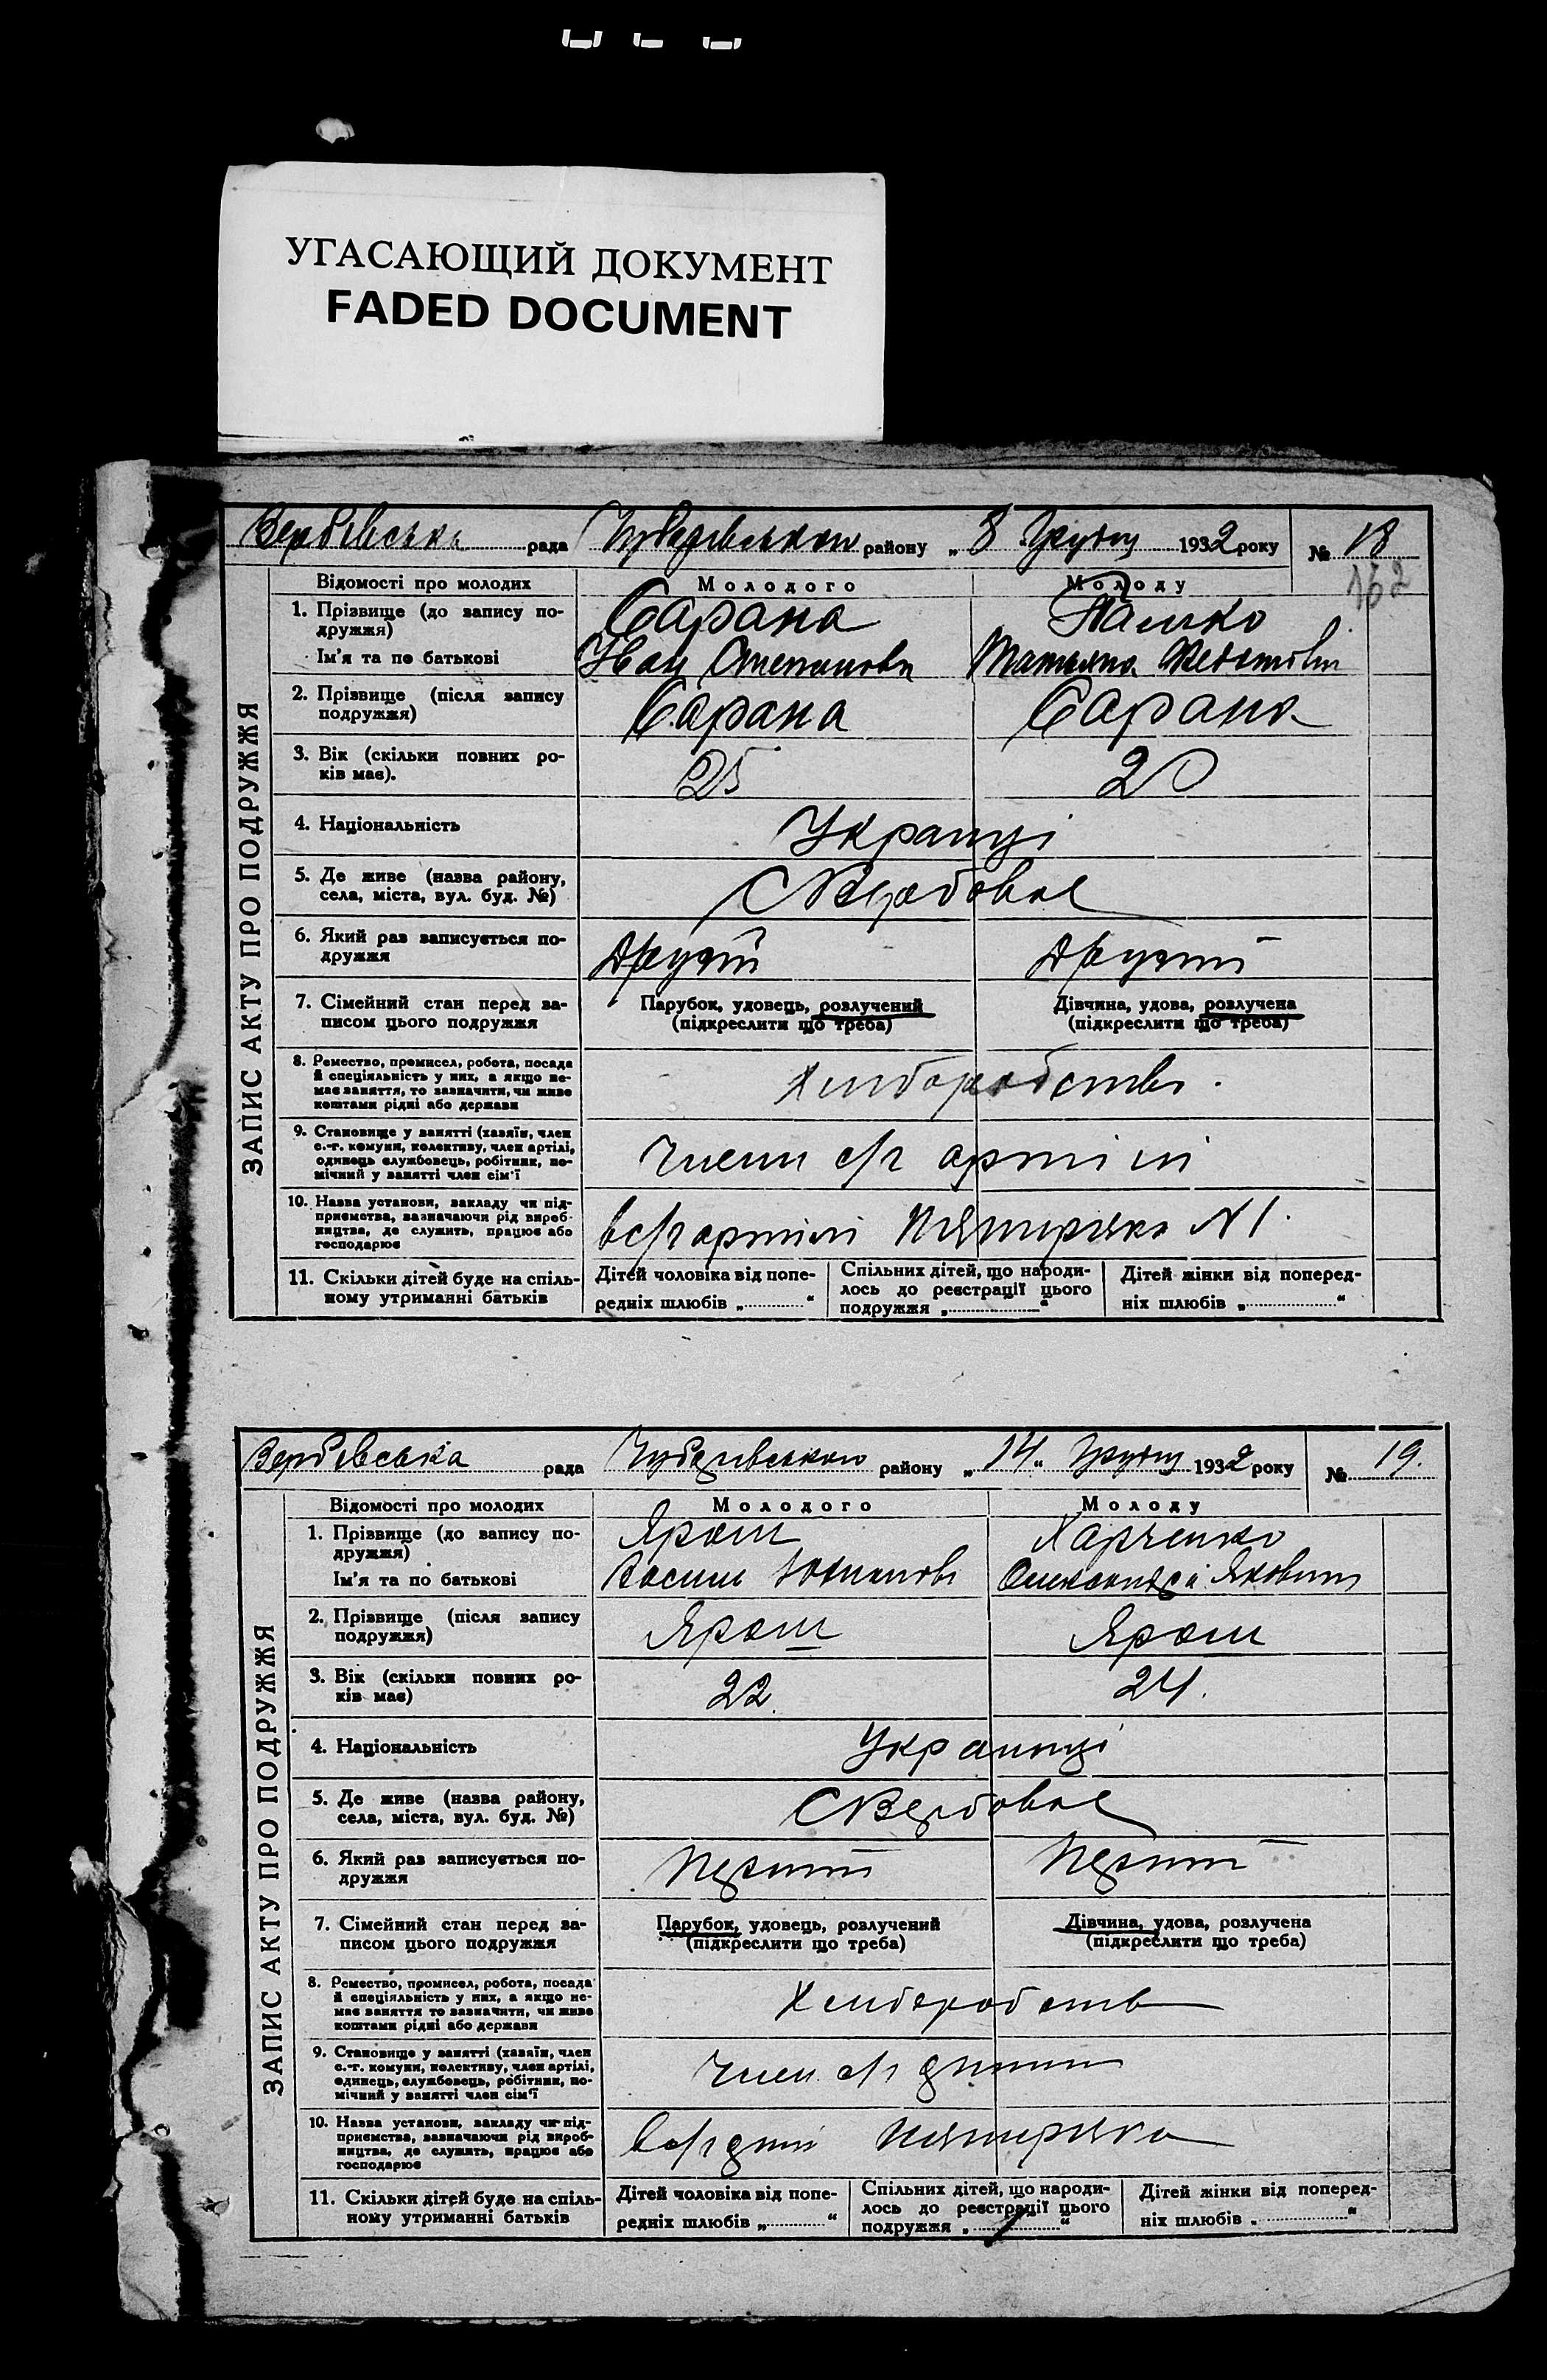 УГАСАЮЩИЙ ДОКУМЕНТ
FADED DOCUMENT
Вербівська рада Чубарівського району „ 8 Грудня 1932 року № 18
162
ЗАПИС АКТУ ПРО ПОДРУЖЖЯ
Відомості про молодих Молодого Молоду
1. Прізвище (до запису по-
дружжя) Сарана Пашко
Ім'я та по батькові Іван Степанови Татьяна
2. Прізвище (після запису
подружжя) Сарана Сарана
3. Вік (скільки повних ро-
ків має). 25 20
4. Національність Українці
5. Де живе (назва району,
села, міста, вул. буд. №) С Вербовое
6. Який раз записується по-
дружжя Другий Другий
7. Сімейний стан перед за-
писом цього подружжя
Парубок, удовець, розлучений
(підкреслити що треба)
Дівчина, удова, розлучена
(підкреслити що треба)
8. Ремество, промисел, робота, посада
й спеціяльність у них, а якщо не-
має заняття, то зазначити, чи живе
коштами рідні або держави
Хліборобство
9. Становище у занятті (хазяїн, член
с.-г. комуни, колективу, член артілі,
одинець службовець, робітник, по-
мічний у занятті член сім'ї
Члени с/г артілі
10. Назва установи, закладу чи під-
приємства, зазначаючи рід вироб-
ництва, де служить, працює або
господарює
в с/г артілі Пятирічка N 1.
11. Скільки дітей буде на спіль-
ному утриманні батьків
Дітей чоловіка від попе-
редніх шлюбів „ “
Спільних дітей, що народи-
лось до реєстрації цього
подружжя „ “
Дітей жінки від поперед-
ніх шлюбів „ “
Вербівська рада Чубарівського району „ 14 “ Грудня 1932 року № 19.
ЗАПИС АКТУ ПРО ПОДРУЖЖЯ
Відомості про молодих Молодого Молоду
1. Прізвище (до запису по-
дружжя) Ярош Харченко
Ім'я та по батькові Василь Олександра Яковівна
2. Прізвище (після запису
подружжя) Ярош Ярош
3. Вік (скільки повних ро-
ків має) 22. 24.
4. Національність Українці
5. Де живе (назва району,
села, міста, вул. буд. №) С Вербовое
6. Який раз записується по-
дружжя Перший Перший
7. Сімейний стан перед за-
писом цього подружжя
Парубок, удовець, розлучений
(підкреслити що треба)
Дівчина, удова, розлучена
(підкреслити що треба)
8. Ремество, промисел, робота, посада
й спеціяльність у них, а якщо не-
має заняття то зазначити, чи живе
коштами рідні або держави
Хліборобств
9. Становище у занятті (хазяїн, член
с.-г. комуни, колективу, член артілі,
одинець, службовець, робітник, по-
мічний у занятті член сім'ї
Член с/г артілі
10. Назва установи, закладу чи під-
приємства, зазначаючи рід вироб-
ництва, де служить, працює або
господарює
в с/г арті Пятирічка
11. Скільки дітей буде на спіль-
ному утриманні батьків
Дітей чоловіка від попе-
редніх шлюбів „ “
Спільних дітей, що народи-
лось до реєстрації цього
подружжя „ “
Дітей жінки від поперед-
ніх шлюбів „ “